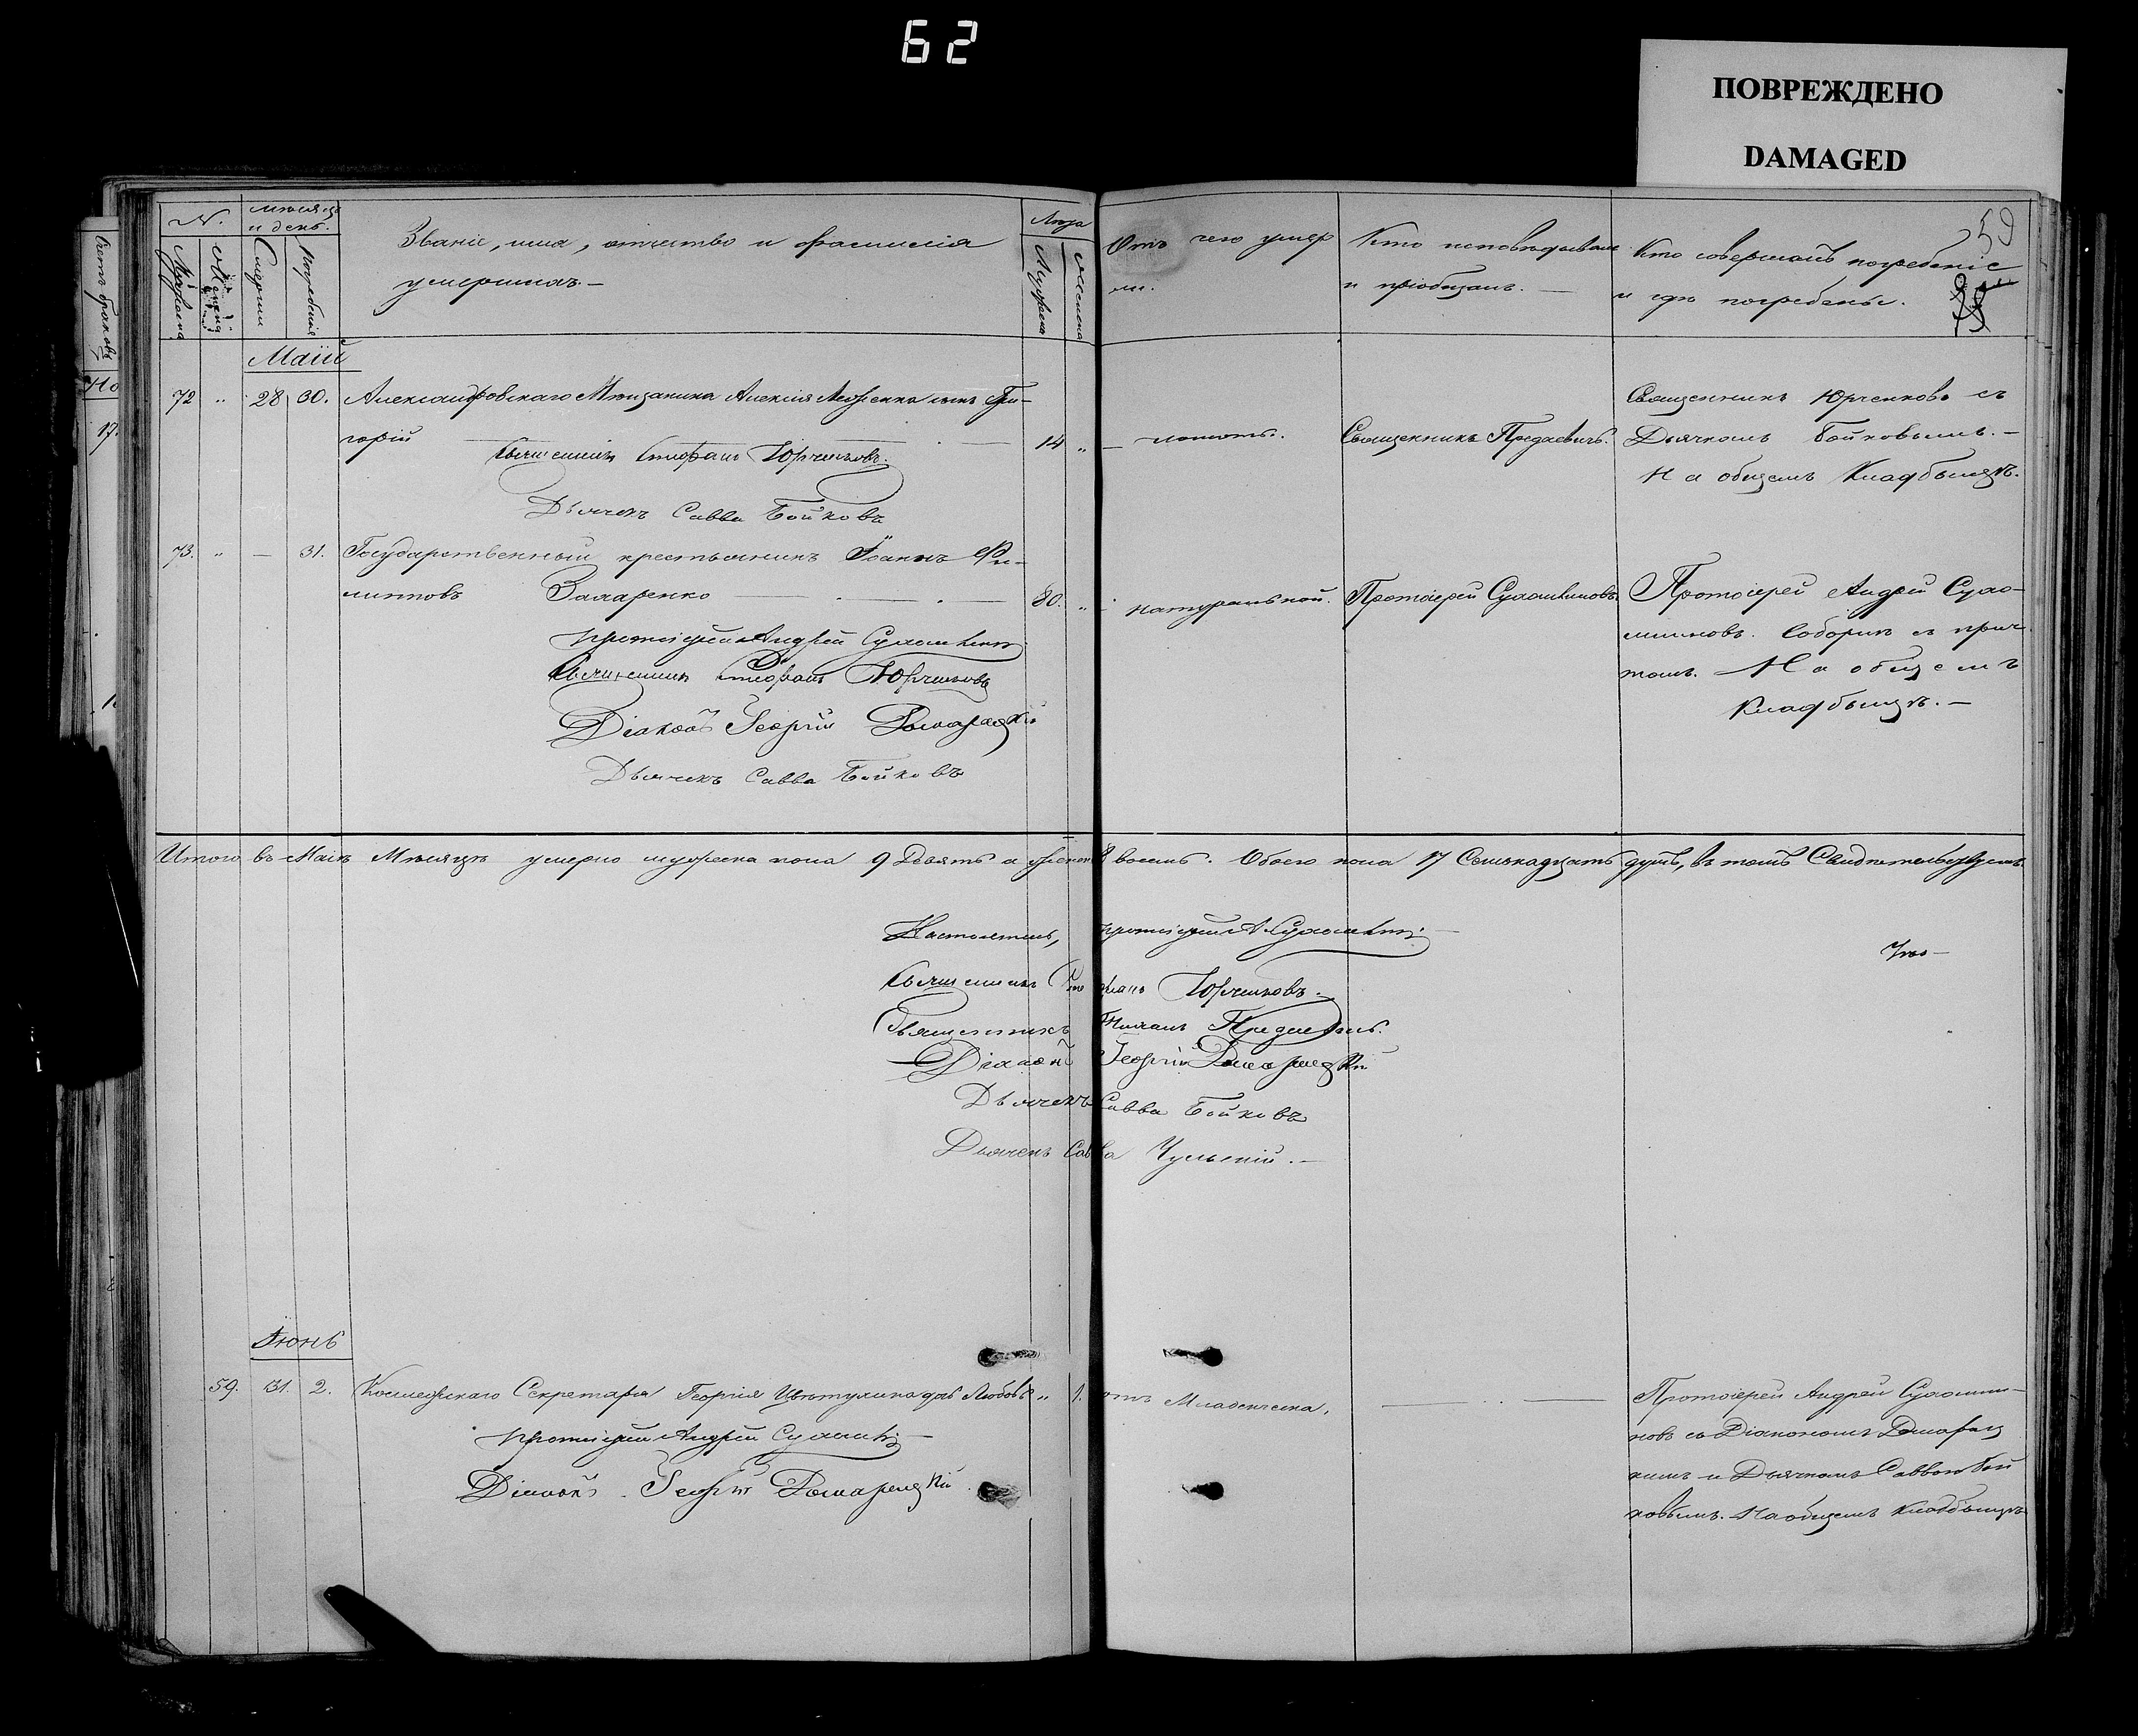 62
ПОВРЕЖДЕНО
DAMAGED
59
№. мѣсяцъ и день. Званіе, имя, отчество и фамилія умершихъ.— Лѣта Отъ чего умерли. Кто исповѣдывалъ и пріобщалъ. — Кто совершалъ погребеніе и гдѣ погребены.
Мужеска Женска Смерти Погребенія Мужеска Женска
Счетъ браковъ
Маій
72 „ 28 30. Александровскаго Мѣщанина Алексія сынъ Гри-
горій 14 „ Священникъ
Священникъ Стефанъ Юрченковъ.
Дьячекъ Савва Бойковъ
Священникъ Юрченковъ съ
Дьячкомъ Бойковымъ.—
На общемъ Кладбищѣ.
73. „ — 31. Государственный крестьянинъ Іоаннъ Фи-
липповъ Захаренко 80. „ натуральной. Протоіерей Сухомлиновъ.
протоіерей Андрей Сухомлинов
Священникъ Стефанъ Юрченковъ
Діаконъ Георгій Ромарецкій
Дьячекъ Савва Бойковъ
Протоіерей Андрей Сухо-
млиновъ. Соборнѣ съ прич-
томъ. — На общемъ
Кладбищѣ. —
Итого въ Маіѣ Мѣсяцѣ умерло мужеска пола 9 Девять а женска 8 восемь. Обоего пола 17 Семнадцать душъ, въ томъ Свидѣтельствуемъ
Настоятель, протоіерей А Сухомлинов
Священникъ Стефанъ Юрченковъ.
Священникъ
Діаконъ Георгій Ромарецкій
Дьячекъ Савва Бойковъ
Дьячекъ Савва Чульскій. —
Іюнь
59. 31. 2. Коллежскаго Секретаря Георгія дочь Любовь „ 1. отъ Младенческа.
протоіерей Андрей Сухомлинов
Діаконъ Георгій Ромарецкій
Протоіерей Андрей Сухомли-
новъ съ Діакономъ Ромарец
кимъ и Дьячкомъ Саввою Бой
ковымъ. На общемъ кладбищѣ